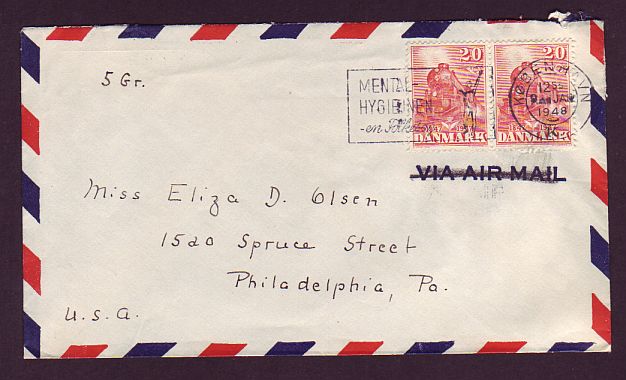 5 Gr.
MENTAL-
HYGIEJNEN
-en
20 20
DANMARK DANMARK
KØBENHAVN
JAN
1948
VIA AIR MAIL
Miss Eliza D. Olsen
1520 Spruce Street
Philadelphia, Pa.
U.S.A.